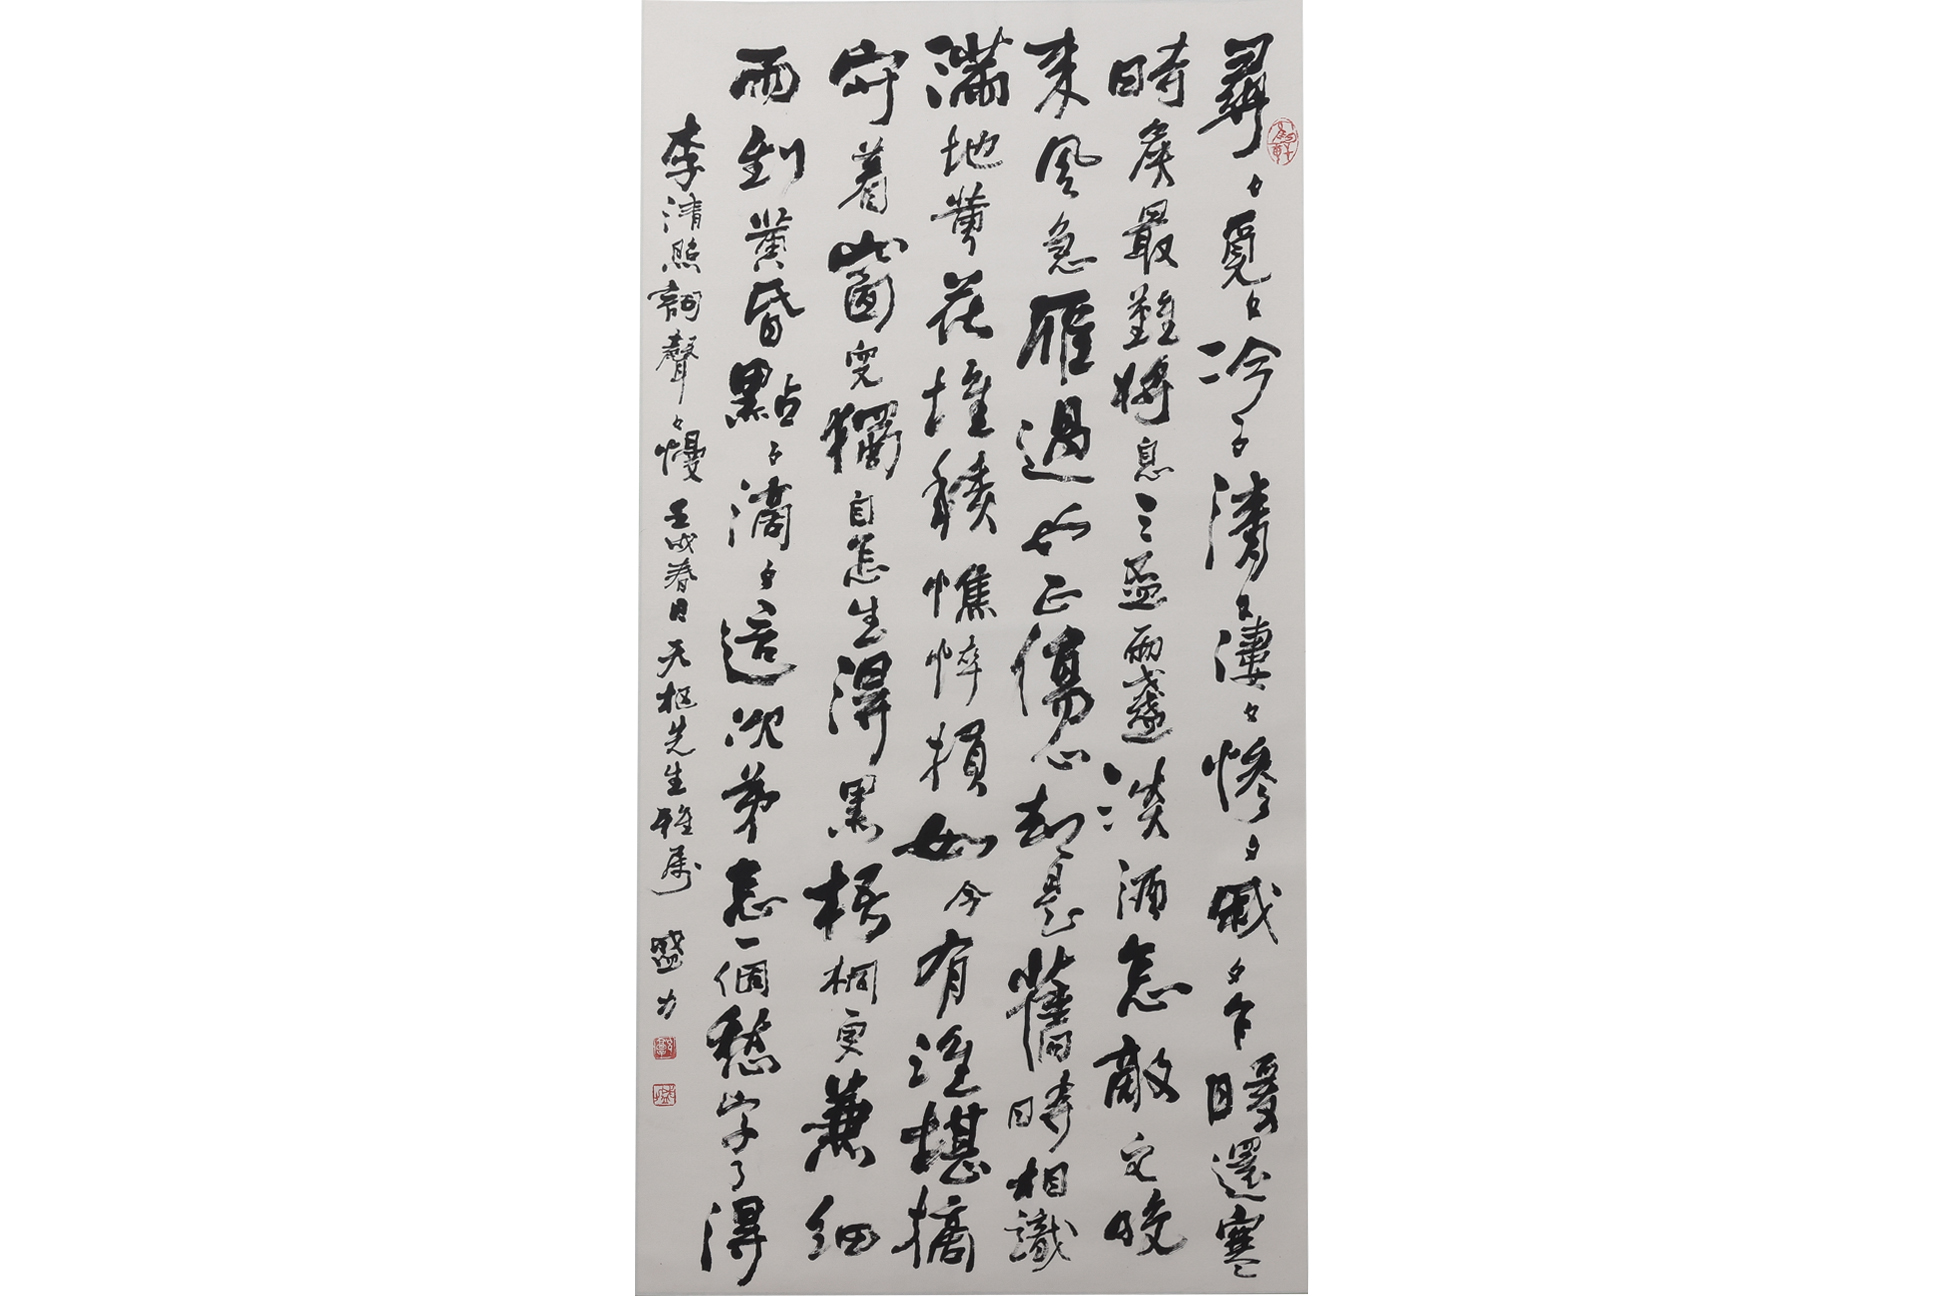 尋々覓々冷々清々凄々慘々戚々乍暖還寒
時候最難將息三盃兩盞淡酒怎敵它晚
来風急雁過也正傷心却是舊時相識
滿地黄花堆積憔悴損如今有誰堪摘
守着窗兒獨自怎生得黑梧桐更兼細
雨到黄昏點々滴々這次第怎一個愁字了得
李清照詞聲々慢 壬戌春日 天樞先生雅屬 盛力